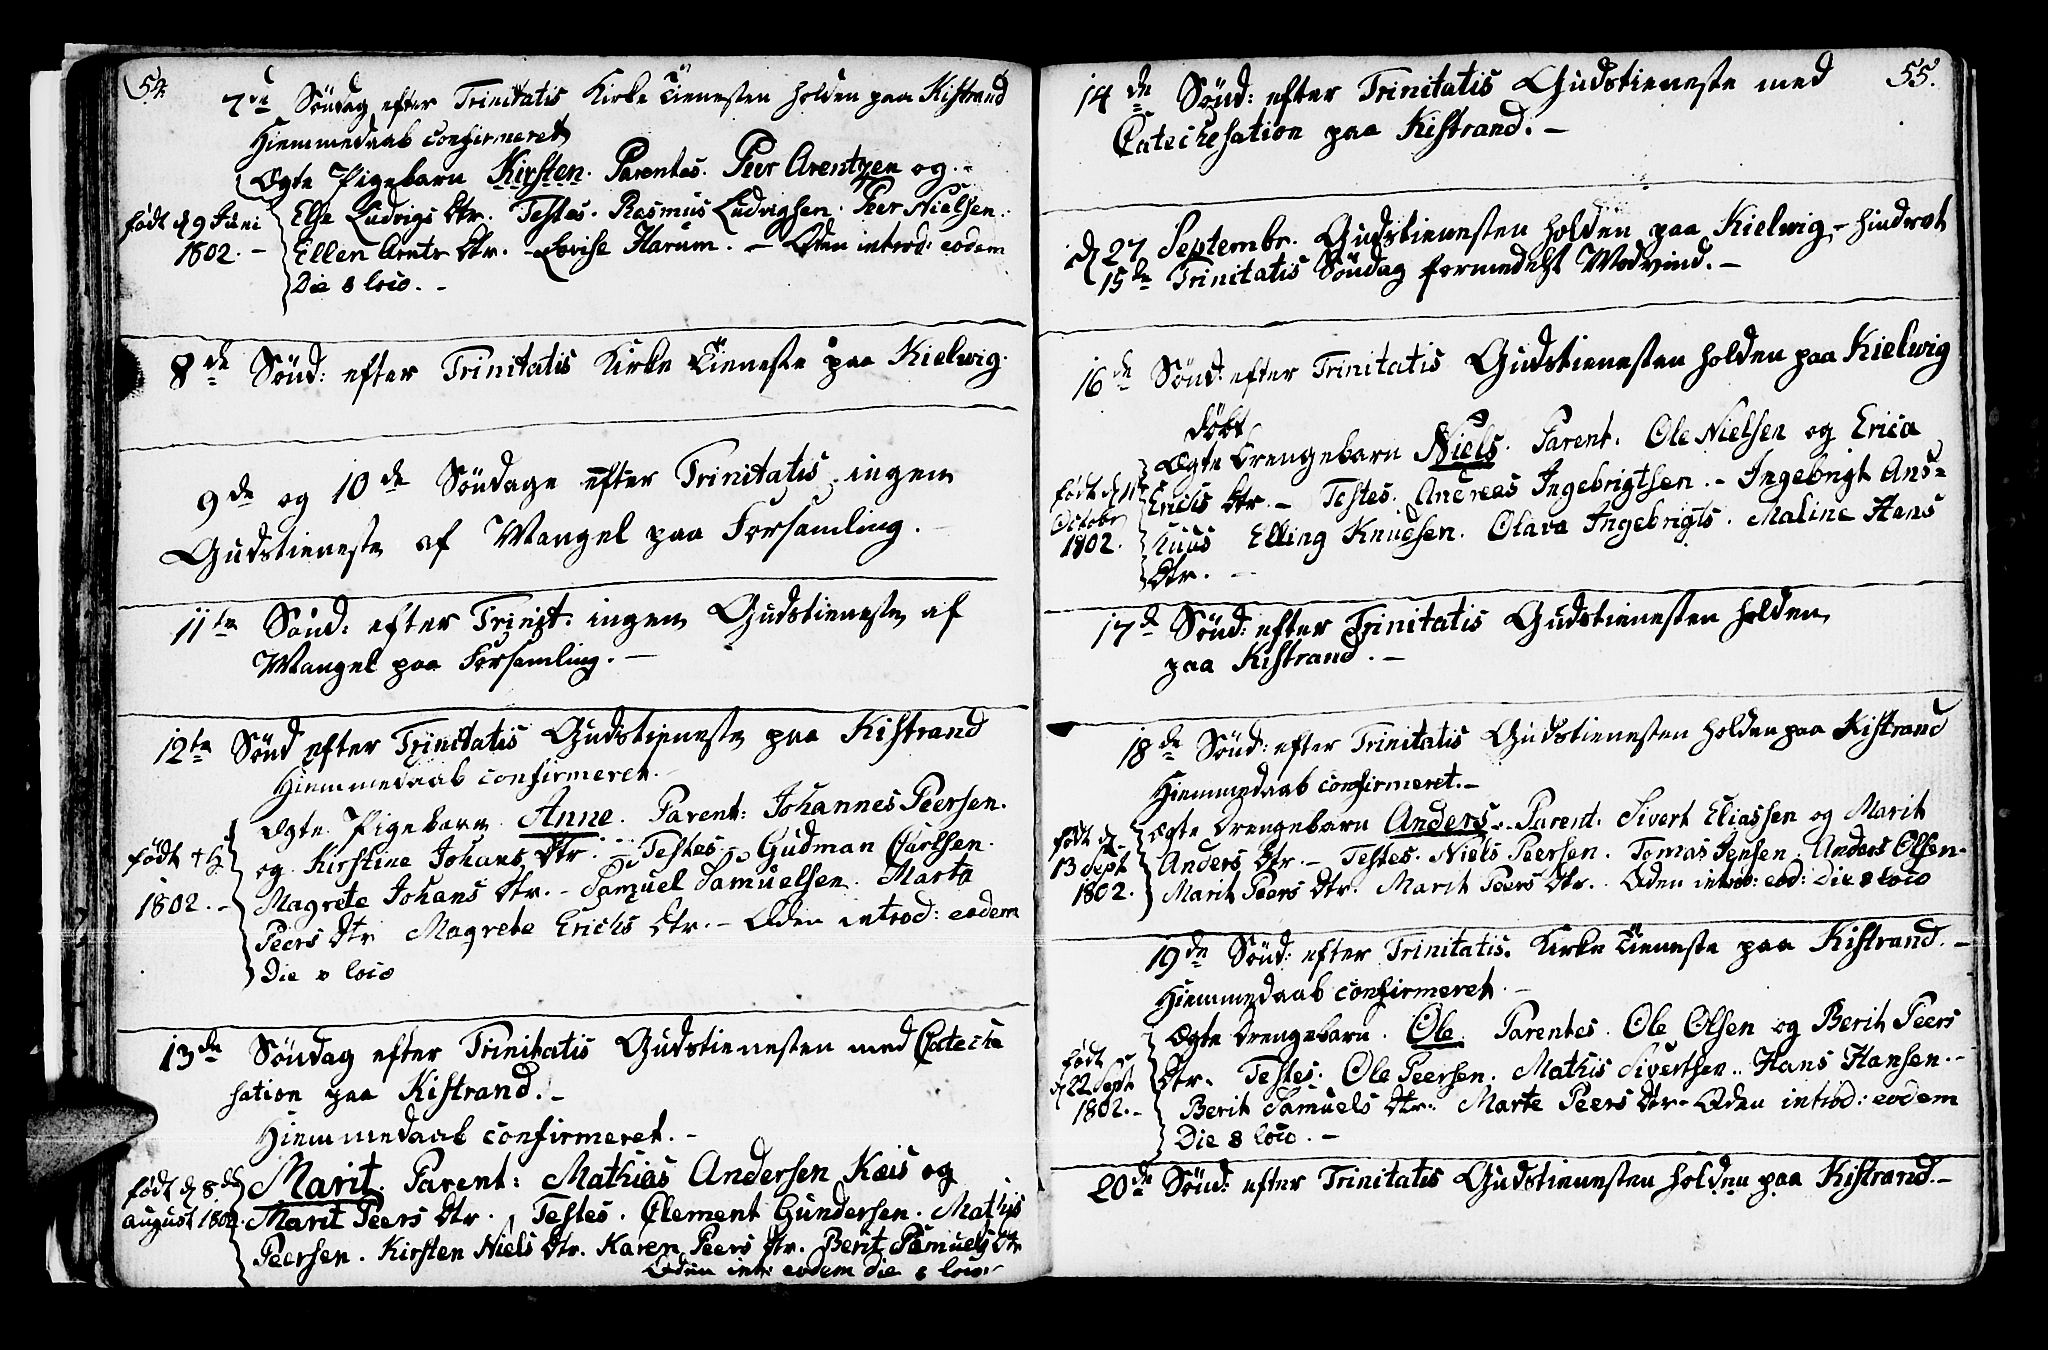 54.
7de Söndag efter Trinitatis Kirke Tienesten holden paa Kistrand
Hiemmedaab confirmeret
Ægte Pigebarn Kirsten. Parentes. Peer Arentzen og.-
födt d 9 Juni
1802.-
Else Ludvigs Dtr. Testes. Rasmus Ludvigsen. Peer Nielsen.
Ellen Arnts Dtr. - Lovise Harum. - Oden introd: eodem
Die & loco. -
8de Sönd: efter Trinitatis Kirke Tieneste paa Kielwig.
9de og 10de Söndage efter Trinitatis ingen
Gudstieneste af Mangel paa Forsamling.
11te Sönd: efter Trinit: ingen Gudstieneste af
Mangel paa Forsamling. -
12te Sönd efter Trinitatis Gudstieneste paa Kistrand
Hiemmedaab confirmeret.
Ægte Pigebarn Anne. Parent: Johannes Peersen.
födt
1802.-
og Kirstine Johans Dtr. Testes. Gudman Carlsen.
Magrete Johans Dtr. - Samuel Samuelsen. Marta
Peers Dtr Magrete Erichs Dtr. - Oden introd: eodem
Die & loco
13de Söndag efter Trinitatis Gudstienesten med Cateche
sation paa Kistrand. -
Hiemmedaab confirmeret. -
födt d 8de
august 1802.
Marit. Parent: Mathias Andersen Kæis og
Marit Peers Dtr. Testes. Clement Gundersen. Mathis
Peersen. Kirsten Niels Dtr. Karen Peers Dtr. Berit Samuels Dtr
Oden intr: eodem die & loco.
55.
14de Sönd: efter Trinitatis Gudstieneste med
Catechesation paa Kistrand. -
d 27 Septembr. Gudstienesten holden paa Kielwig, - hindret
15de Trinitatis Söndag formedelst Modvind. -
16de Sönd: efter Trinitatis Gudstienesten holden paa Kielwig
döbt
Ægte Drengebarn Niels. Parent. Ole Nielsen og Erica
födt d 1
Octobr
1802.
Erichs Dtr. - Testes. Andreas Ingebrigtsen. - Ingebrigt Ans=
Elling Knudsen. Olava Ingebrigts. Maline Hans
Dtr. -
17de Sönd: efter Trinitatis Gudstienesten holden
paa Kistrand. -
18de Sönd: efter Trinitatis Gudstienesten holden paa Kistrand
Hiemmedaab confirmeret. -
Ægte Drengebarn Anders. Parent. Sivert Eliassen og Marit
födt d
13 Sept
1802.
Anders Dtr. - Testes. Niels Peersen. Tomas Jensen. Anders Olsen.
Marit Peers Dtr. Marit Peers Dtr. Oden introd: eod: die & loco
19de Sönd: efter Trinitatis. Kirke Tieneste paa Kistrand. -
Hiemmedaab confirmeret. -
Ægte Drengebarn. Ole. Parentes. Ole Olsen og Berit Peers
födt
d 22 Sept
1802. -
Dtr. Testes. Ole Peersen. Mathis Sivertsen. Hans Hansen. -
Berit Samuels Dtr. Marte Peers Dtr. Oden introd: eodem
Die & loco. -
20de Sönd: efter Trinitatis Gudstienesten holden paa Kistrand. -